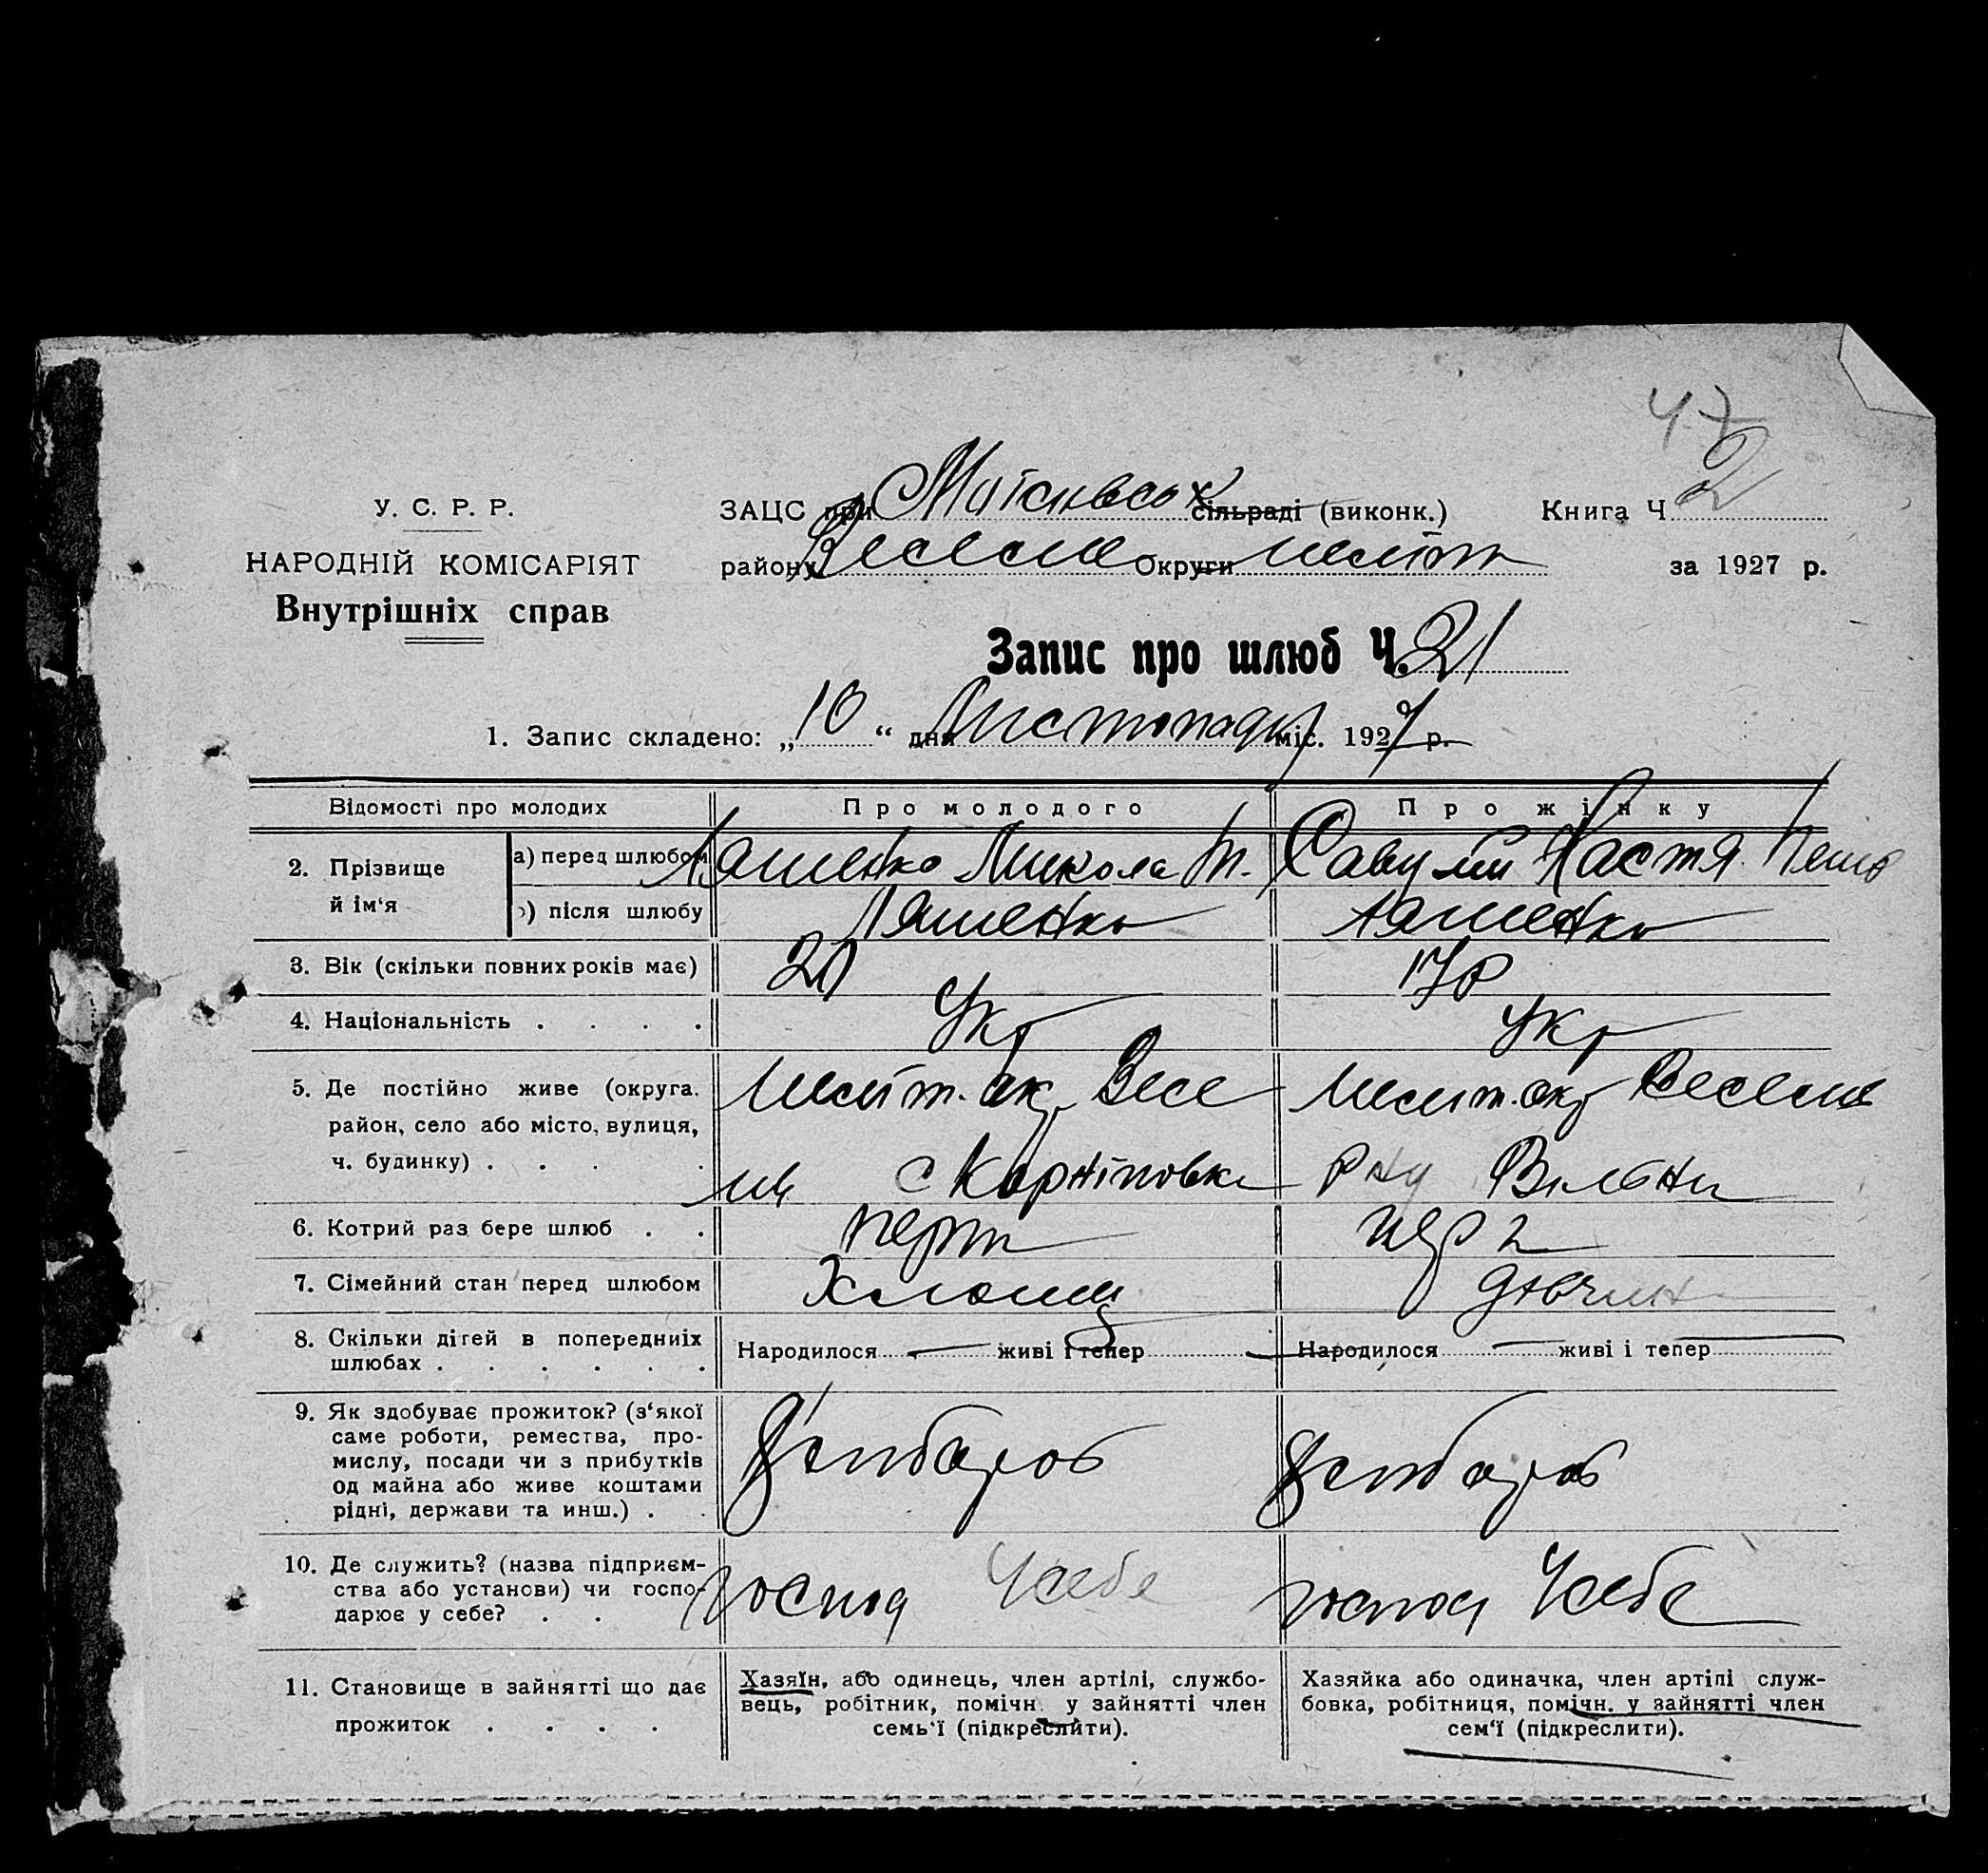 47
У. С. Р. Р.
НАРОДНІЙ КОМІСАРІЯТ
Внутрішніх справ
ЗАЦС при сільраді (виконк.) Книга Ч 2
району Веселе Округи Меліт за 1927 р.
Запис про шлюб Ч. 21
1. Запис складено: „10“ дня Листопаду міс. 1927 р.
Відомості про молодих Про молодого Про жінку
2. Прізвище й ім‘я
а) перед шлюбом Ляшенко Микола Т. Настя
б) після шлюбу Ляшенко Ляшенко
3. Вік (скільки повних років має) 20 17 р
4. Національність . . . . Укр Укр
5. Де постійно живе (округа. Меліт. окр Весе Меліт. окр Веселе
район, село або місто, вулиця,
ч. будинку) . . . . с Вільни
6. Котрий раз бере шлюб . . перш
7. Сімейний стан перед шлюбом Хлопець дівчина
8. Скільки дітей в попередниіх Народилося — живі і тепер — Народилося — живі і тепер —
шлюбах . . . . . .
9. Як здобуває прожиток? (з‘якої
саме роботи, ремества, про-
мислу, посади чи з прибутків
од майна або живе коштами
рідні, держави та инш.) . . Хлібороб Хлібороб
10. Де служить? (назва підприєм-
ства або установи) чи госпо-
дарює у себе? . . Господ У себе господ У себе
11. Становище в зайнятті що дає
прожиток . . . .
Хазяїн, або одинець, член артілі, службо-
вець, робітник, помічн. у зайнятті член
семь‘ї (підкреслити).
Хазяйка або одиначка, член артілі служ-
бовка, робітниця, помічн. у зайнятті член
сем‘ї (підкреслити).